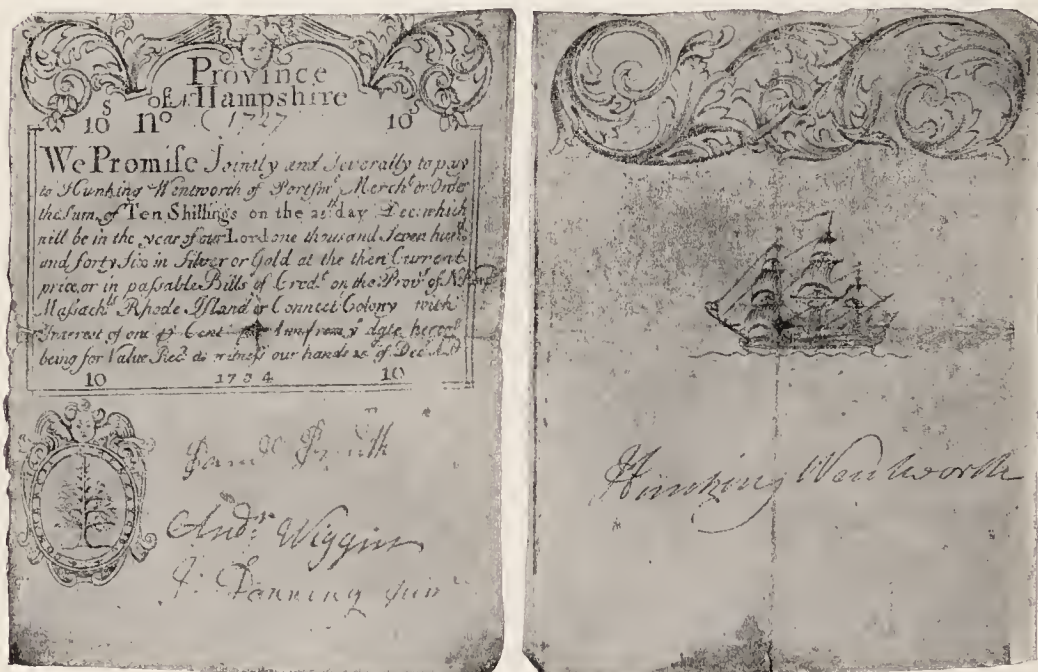 Province
of N. Hampshire
10 S No (1727 10 S
We Promise Jointly and Severally to pay
to Hunking Wentworth of Portsmo Mercht or Order
the Sum of Ten Shillings on the 25th day Dec: which
will be in the year of our Lord one thousand Seven hund
and forty Six in Silver or Gold at the then Current
price, or in passable Bills of Credt on the Prov of N Hamp
Massachts Rhode Island or Connect Colony with
Interest of one pr Cent pr Ann from ye date hereof
being for Value Recd as witness our hands Dec
10 1734 10
Hunking Wentworth
Andw Wiggin
J: Banning Junr